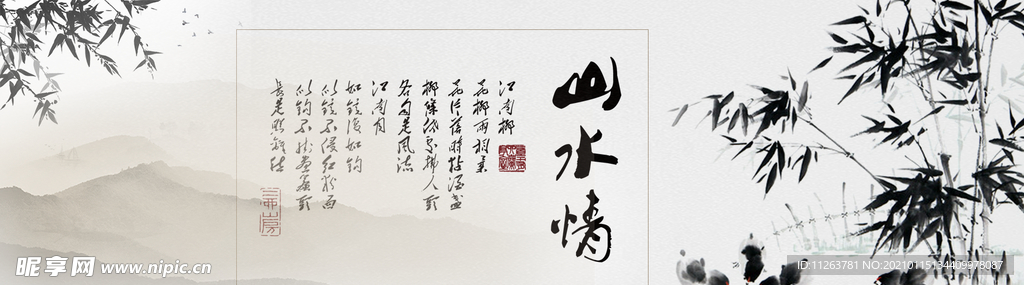 山水情
江南柳
花柳两相柔
花片落时粘酒盏
柳条低处拂人头
各自是风流
江南月
如镜复如钩
似镜不侵红粉面
似钩不挂画帘头
长是照离愁
昵享网 www.nipic.cn
ID:11263781 NO:20210115134409978087